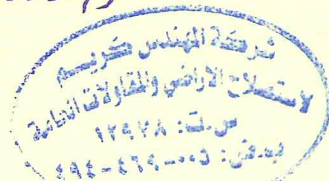 شركة المهندس كريم
لاستصلاح الاراضي والمقاولات العامة
س.ت: ١٢٩٧٨
ب.ض: ٠٠٥-٤٦٩-٤٩٤